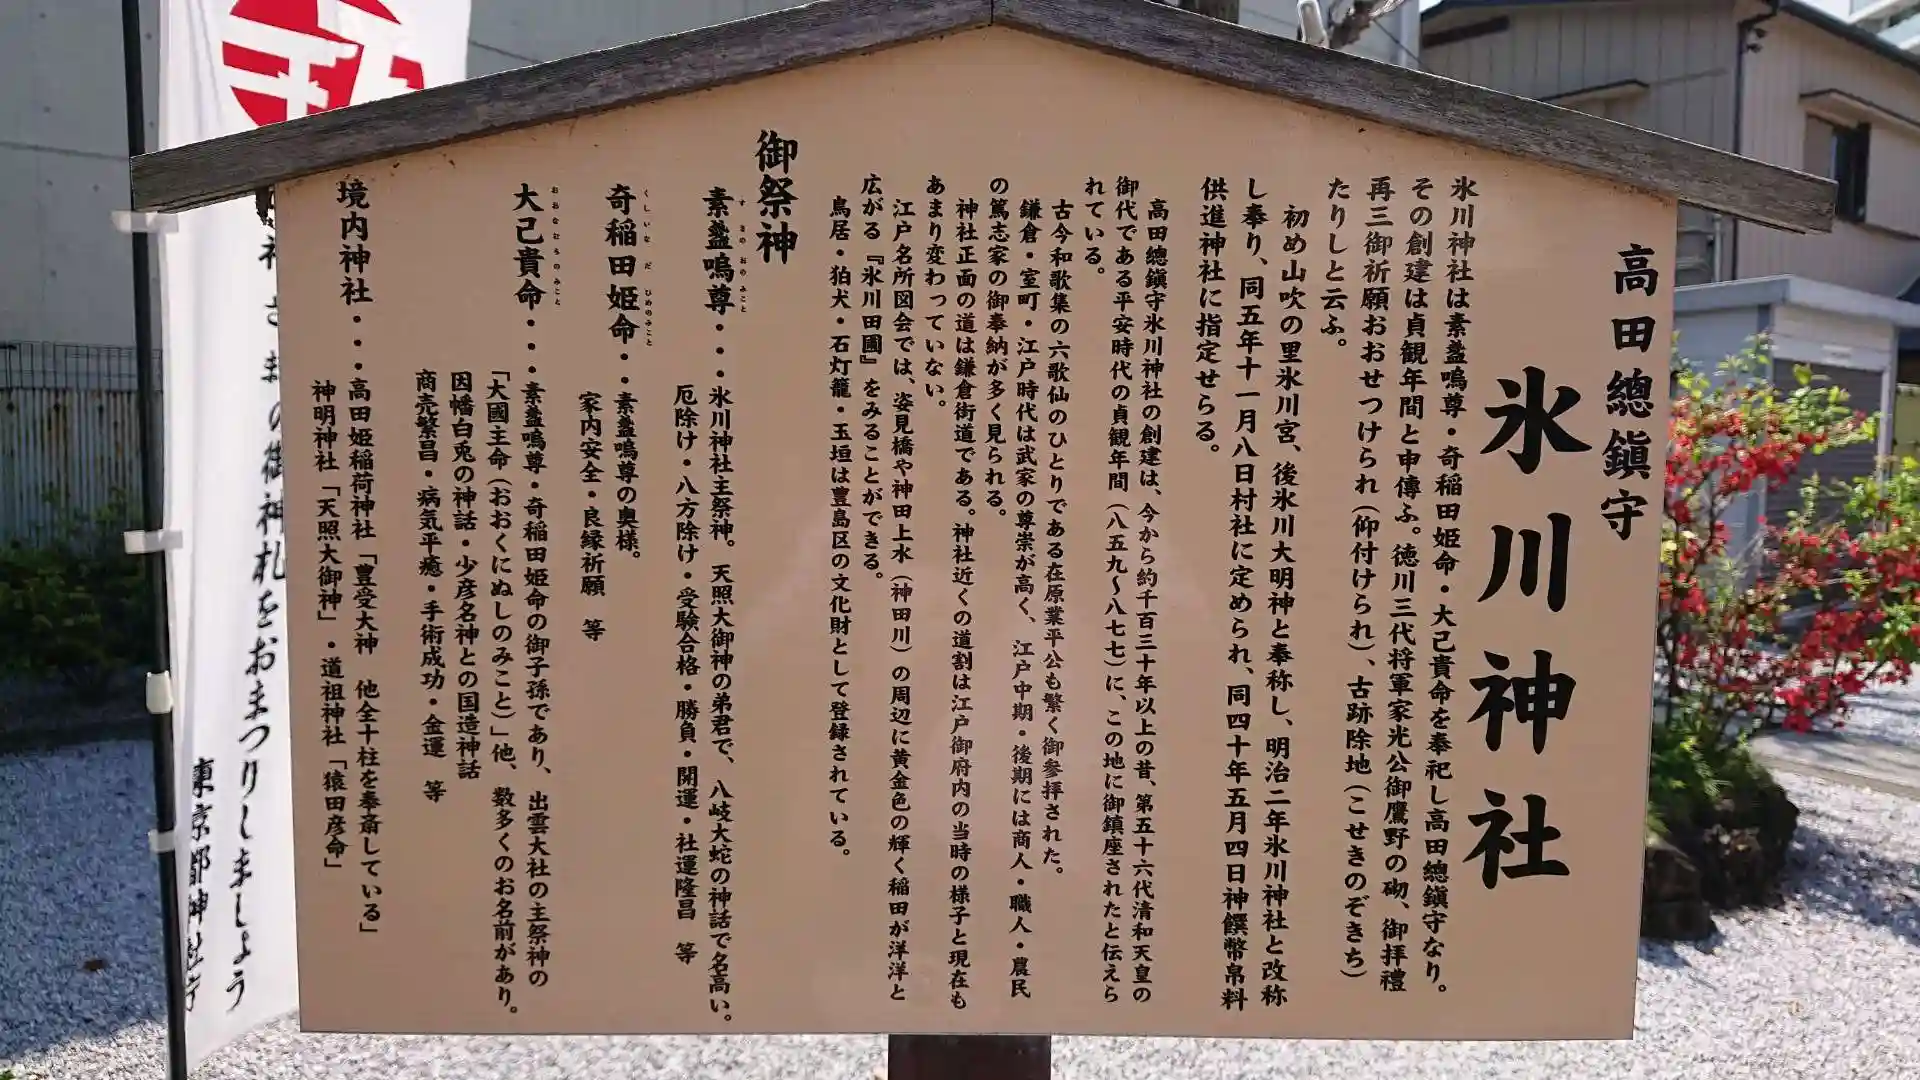 高田總鎭守
氷川神社
氷川神社は素盞嗚尊・奇稲田姫命・大己貴命を奉祀し高田總鎭守なり。
その創建は貞観年間と申傳ふ。徳川三代将軍家光公御鷹野の砌、御拝禮
再三御祈願おおせつけられ（仰付けられ）、古跡除地（こせきのぞきち）
たりしと云ふ。
初め山吹の里氷川宮、後氷川大明神と奉称し、明治二年氷川神社と改称
し奉り、同五年十一月八日村社に定められ、同四十年五月四日神饌幣帛料
供進神社に指定せらる。
高田總鎭守氷川神社の創建は、今から約千百三十年以上の昔、第五十六代清和天皇の
御代である平安時代の貞観年間（八五九〜八七七）に、この地に御鎮座されたと伝えら
れている。
古今和歌集の六歌仙のひとりである在原業平公も繁く御参拝された。
鎌倉・室町・江戸時代は武家の尊崇が高く、江戸中期・後期には商人・職人・農民
の篤志家の御奉納が多く見られる。
神社正面の道は鎌倉街道である。神社近くの道割は江戸御府内の当時の様子と現在も
あまり変わっていない。
江戸名所図会では、姿見橋や神田上水（神田川）の周辺に黄金色の輝く稲田が洋洋と
広がる『氷川田圃』をみることができる。
鳥居・狛犬・石灯籠・玉垣は豊島区の文化財として登録されている。
御祭神
素盞嗚尊・・・氷川神社主祭神。天照大御神の弟君で、八岐大蛇の神話で名高い。
すさのおのみこと
厄除け・八方除け・受験合格・勝負・開運・社運隆昌　等
奇稲田姫命・・素盞嗚尊の奥様。
くしいなだひめのみこと
家内安全・良縁祈願　等
大己貴命・・・素盞嗚尊・奇稲田姫命の御子孫であり、出雲大社の主祭神の
おおなむちのみこと
「大國主命（おおくにぬしのみこと）」他、数多くのお名前があり。
因幡白兎の神話・少彦名神との国造神話
商売繁昌・病気平癒・手術成功・金運　等
境内神社・・・高田姫稲荷神社「豊受大神　他全十柱を奉斎している」
神明神社「天照大御神」・道祖神社「猿田彦命」
の御神札をおまつりしましょう
東京都神社庁